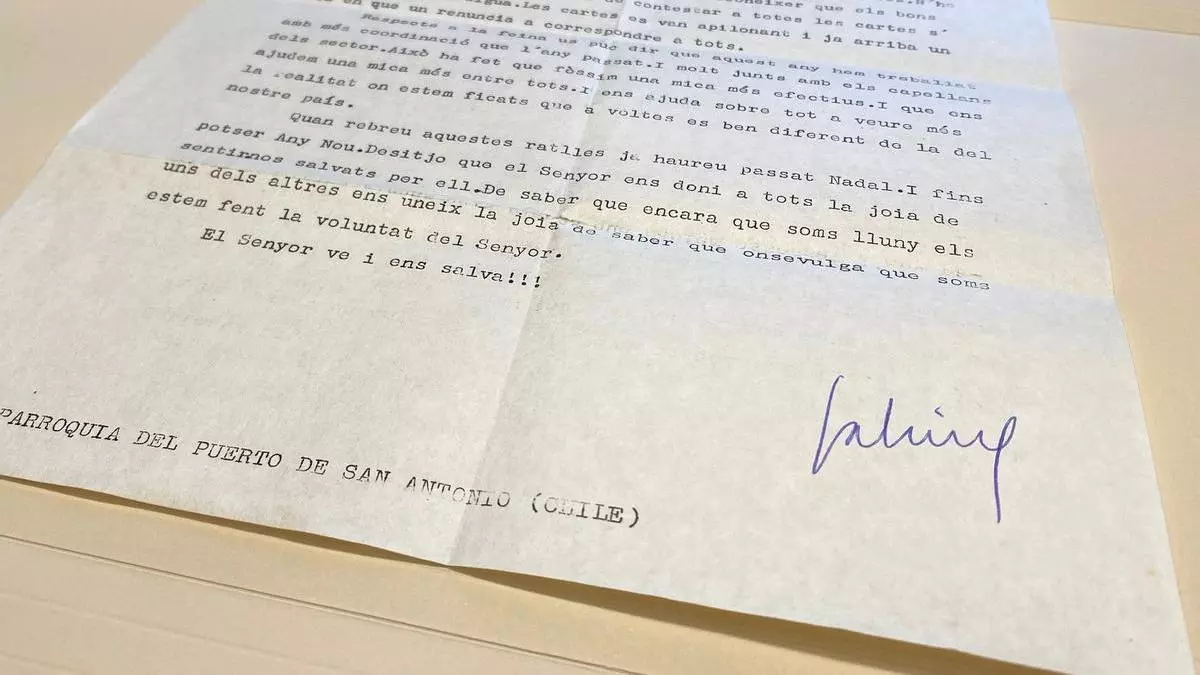 conèixer que els bons
contestar a totes les cartes s'
Les cartes es van apilonant i ja arriba un
en que un renuncia a correspondre a tots.
Respecte a la feina us puc dir que aquest any hem treballat
amb més coordinació que l'any passat.I molt junts amb els capellans
dels sector.Això ha fet que fòssim una mica més efectius.I que ens
ajudem una mica més entre tots.I ens ajuda sobre tot a veure més
la realitat on estem ficats que a voltes es ben diferent de la del
nostre país.
Quan rebreu aquestes ratlles ja haureu passat Nadal.I fins
potser Any Nou.Desitjo que el Senyor ens doni a tots la joia de
sentirnos salvats per ell.De saber que encara que soms lluny els
uns dels altres ens uneix la joia de saber que onsevulga que soms
estem fent la voluntat del Senyor.
El Senyor ve i ens salva!!!
PARROQUIA DEL PUERTO DE SAN ANTONIO (CHILE)